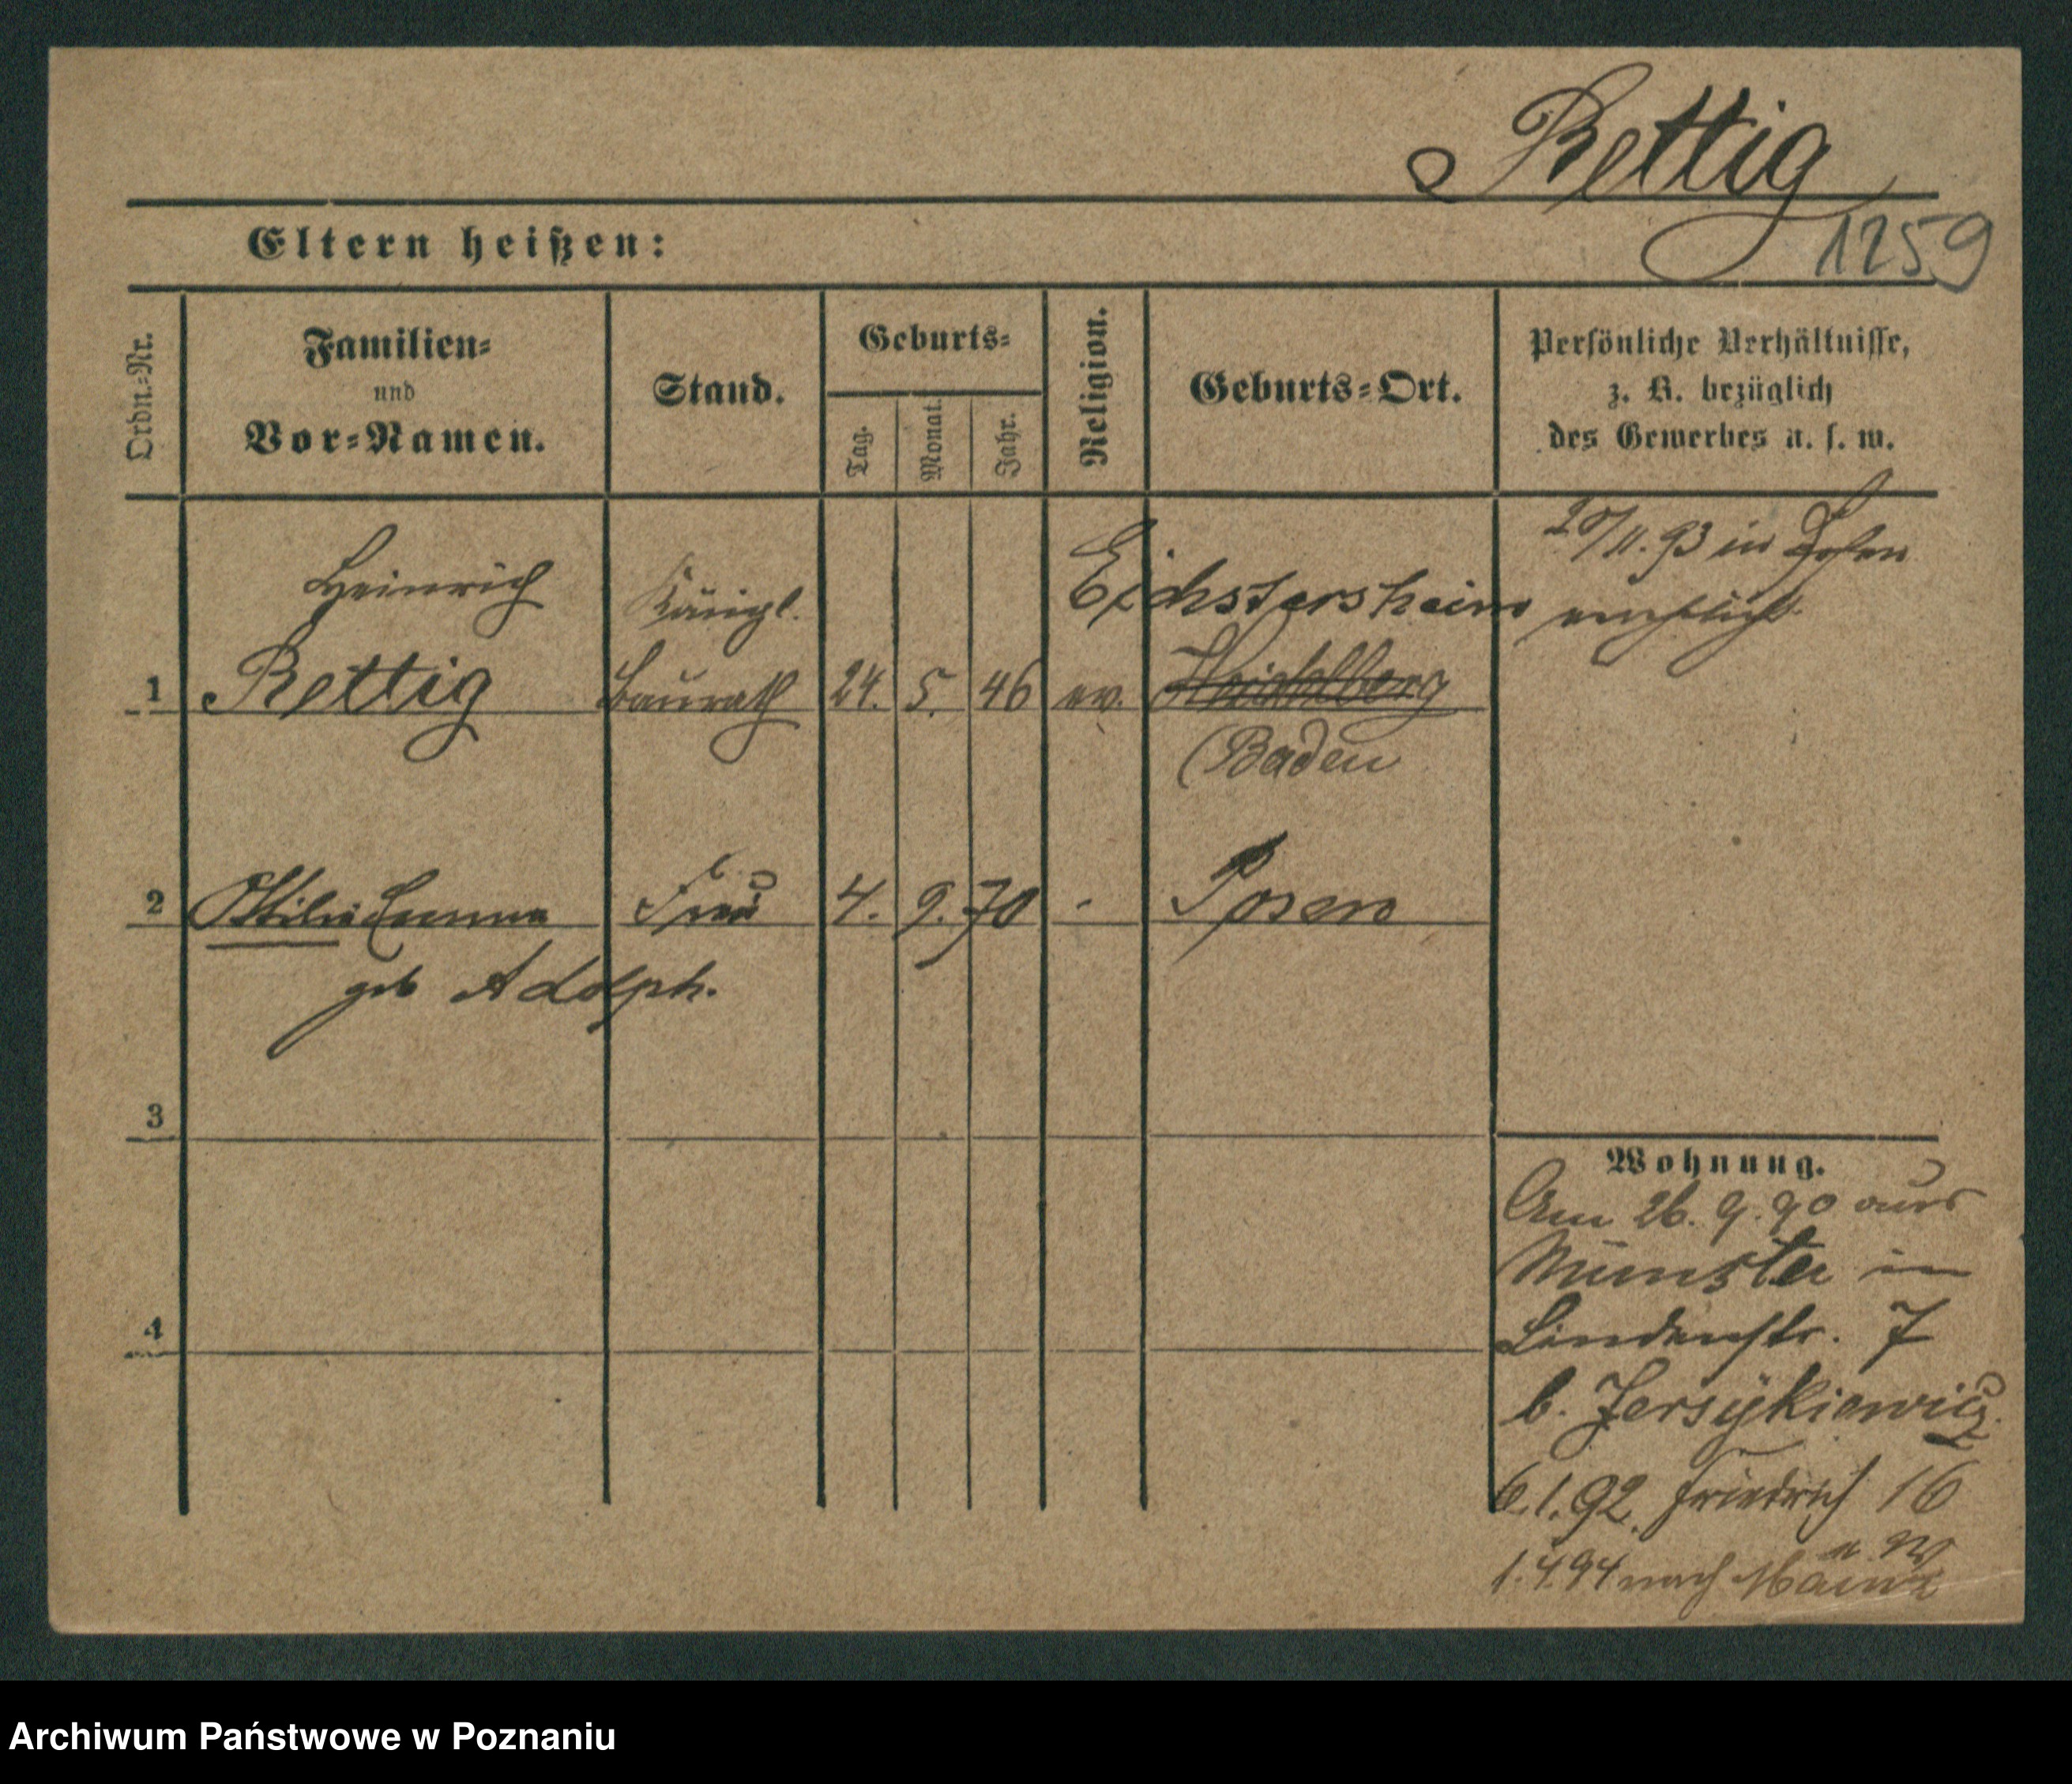 Rettig
1259
Eltern heißen:
Ordn.-Nr.
Familien-
und
Vor-Namen.
Stand.
Geburts-
Tag.
Monat.
Jahr.
Religion.
Geburts-Ort.
Persönliche Verhältnisse,
z. B. bezüglich
des Gewerbes u. s. w.
Heinrich
Königl.
Eichstersheim
20/11.93 in Posen
1 Rettig Baurath 24. 5. 46 ev. Heidelberg
(Baden
2 Ottilie Emma Frau 4. 9. 70 - Posen
geb Adolph.
3
4
Wohnung.
Am 26. 9. 90 aus
Münster in
Lindenstr. 7
b. Jersykiewicz.
6.1.92. Friedrich 16
1.4.94 nach Mainz
Archiwum Państwowe w Poznaniu